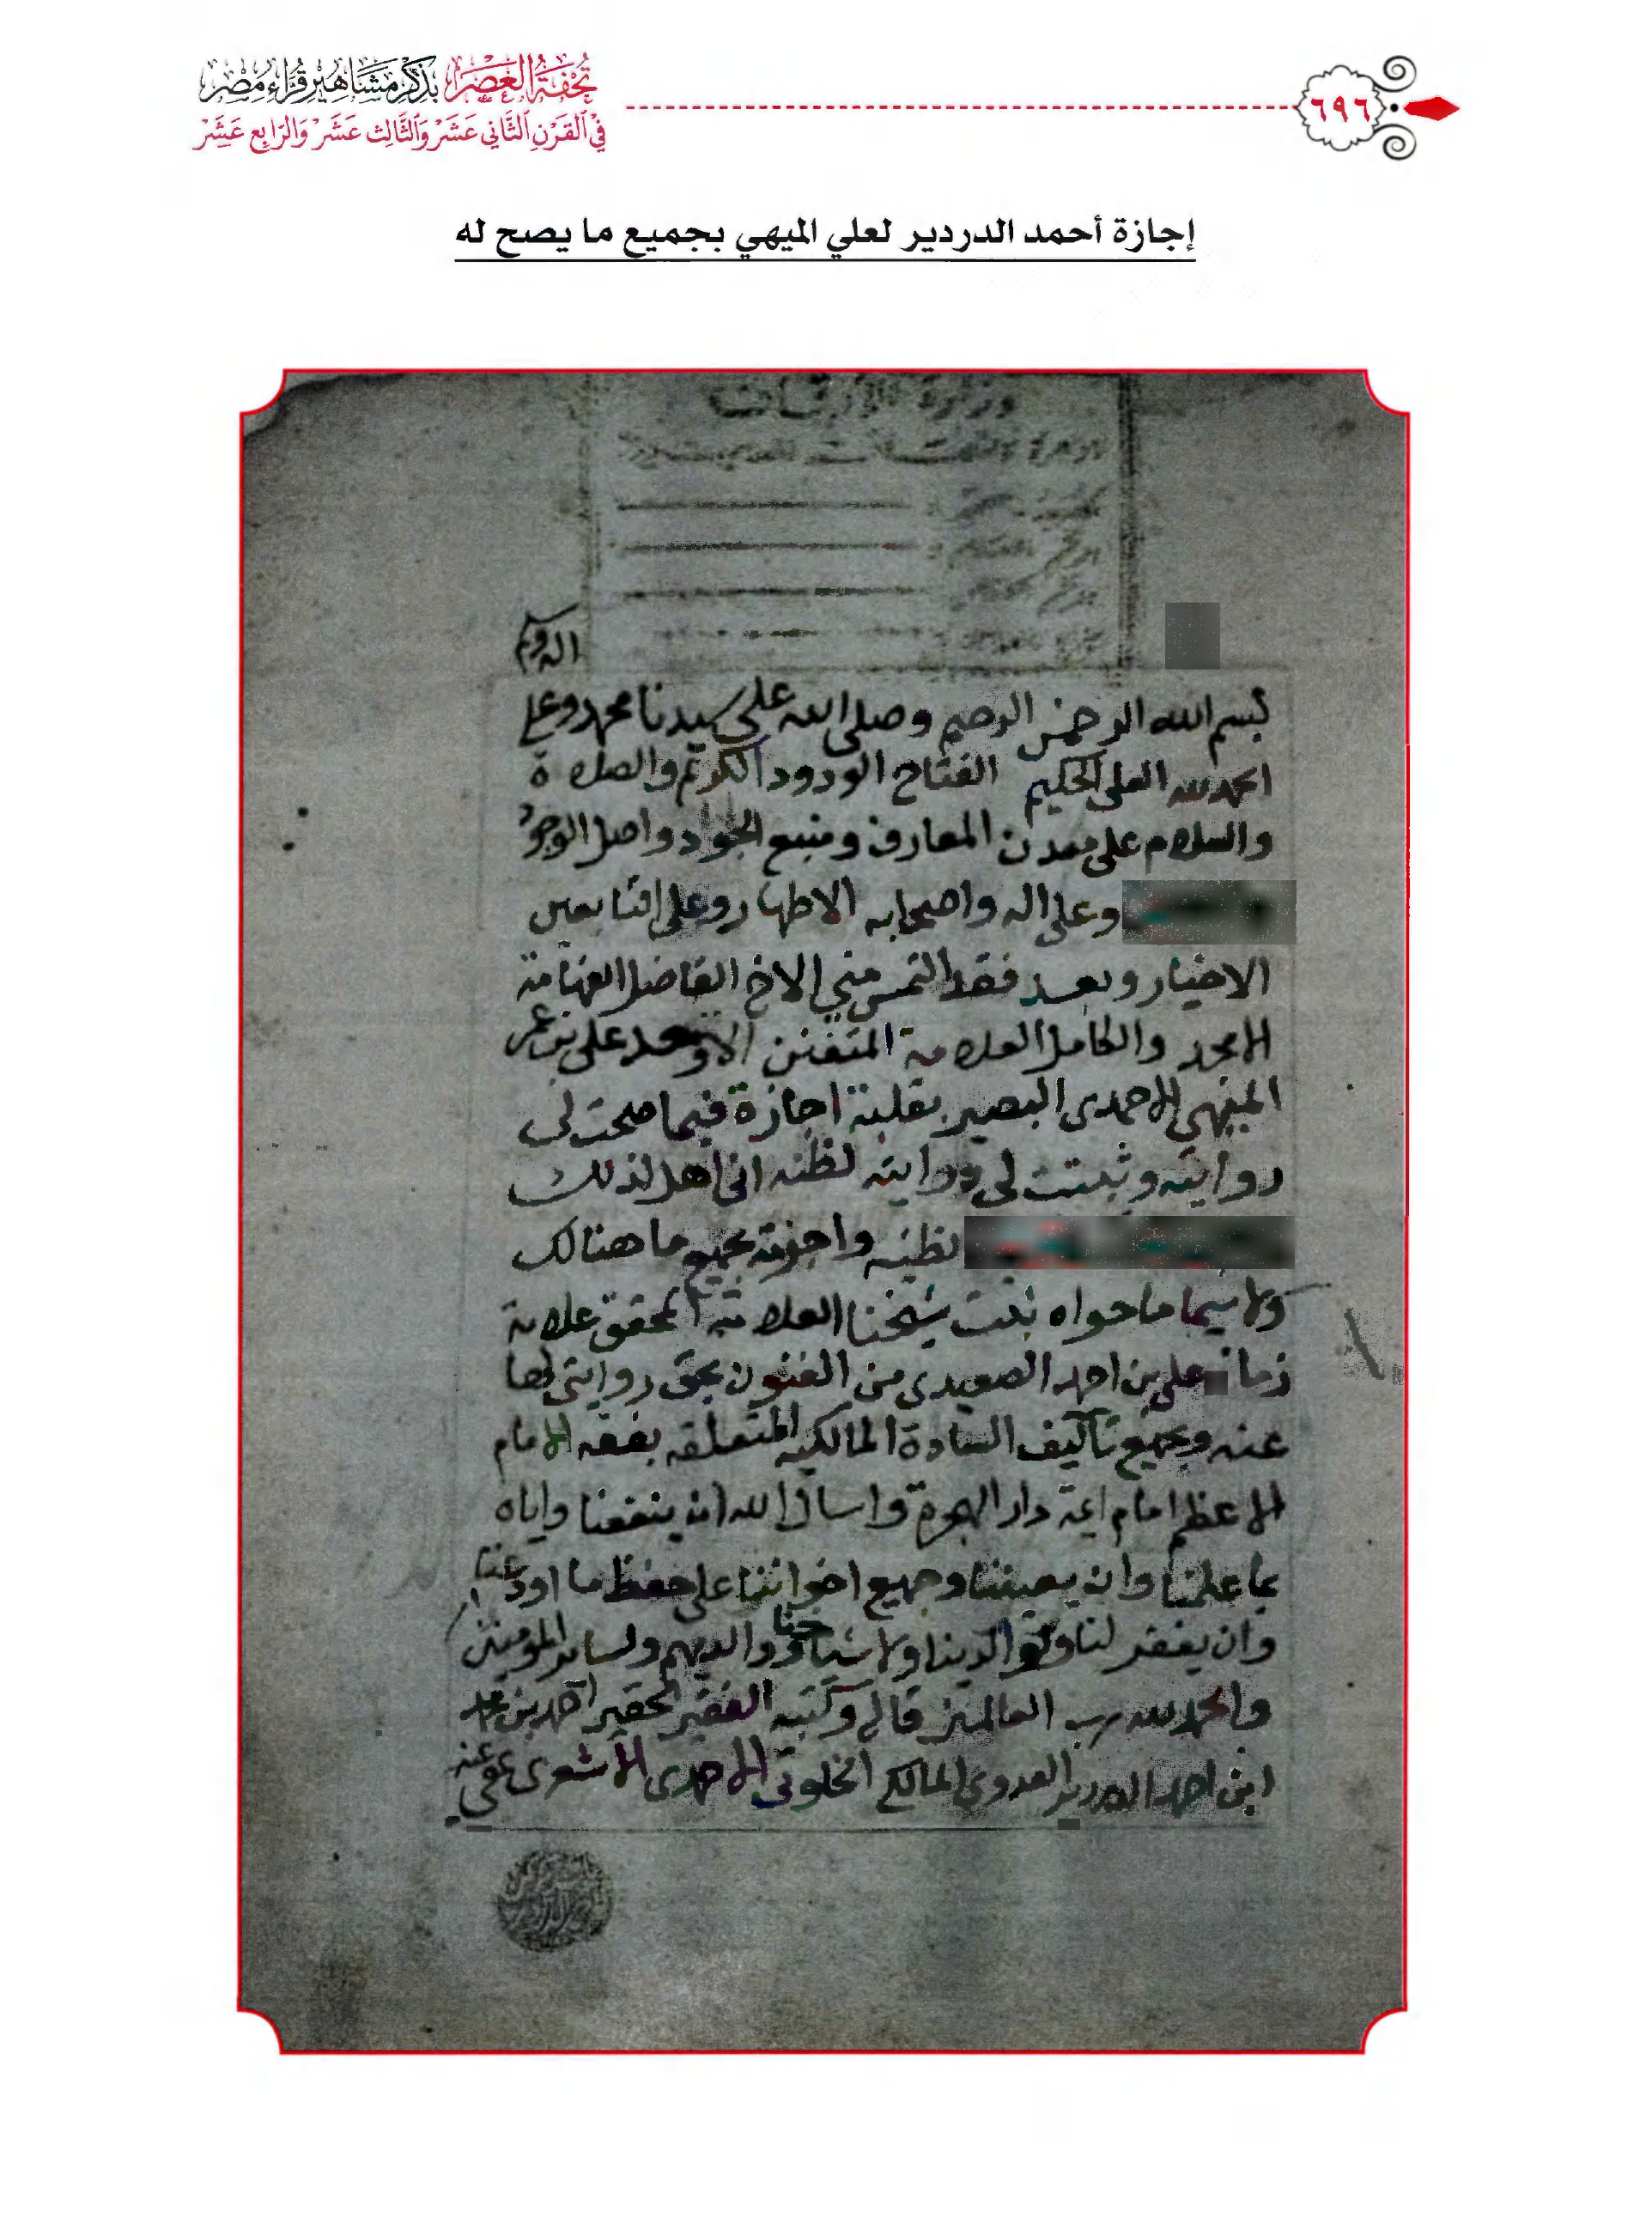 تحفة العصر بذكر مشاهير قراء مصر
في القرن الثاني عشر والثالث عشر والرابع عشر
٦٩٦
إجازة أحمد الدردير لعلي الميهي بجميع ما يصح له
بسم الله الرحمن الرحيم وصلى الله على سيدنا محمد وعلى
الحمد لله العلي الحكيم الفتاح الودود الكريم والصلاة
والسلام على معدن المعارف ومنبع الجود واصل الوجود
وعلى اله واصحابه الاطهار وعلى التابعين
الاخيار وبعد فقد التمس مني الاخ الفاضل الفهامة
الامجد والكامل العلامة المتفنن الاوحد على بن عمر
الميهي الاحمدى البصير بقلبه اجازة فيما صحت لى
روايته وثبتت لى درايته لظنه انى اهل لذلك
لظنه واجزته بجميع ما هنالك
ولا سيما ما حواه ثبت شيخنا العلامة المحقق علامة
زمانه على بن احمد الصعيدى من الفنون بحق روايتى لها
عنه وبجميع تآليف السادة المالكيه المتعلقه بفقه الامام
الاعظم امام ايمة دار الهجرة واسال الله ان ينفعنا واياه
بما علمنا وان يعيننا وجميع اخواننا على حفظ ما اودعنا
وان يغفر لنا ولوالدينا ولاشياخنا ووالديهم ولسائر المومنين
والحمد لله رب العالمين قاله وكتبه الفقير الحقير احمد بن محمد
ابن احمد الدردير العدوى المالكى الخلوتى الاحمدى الاشعرى عفى عنه